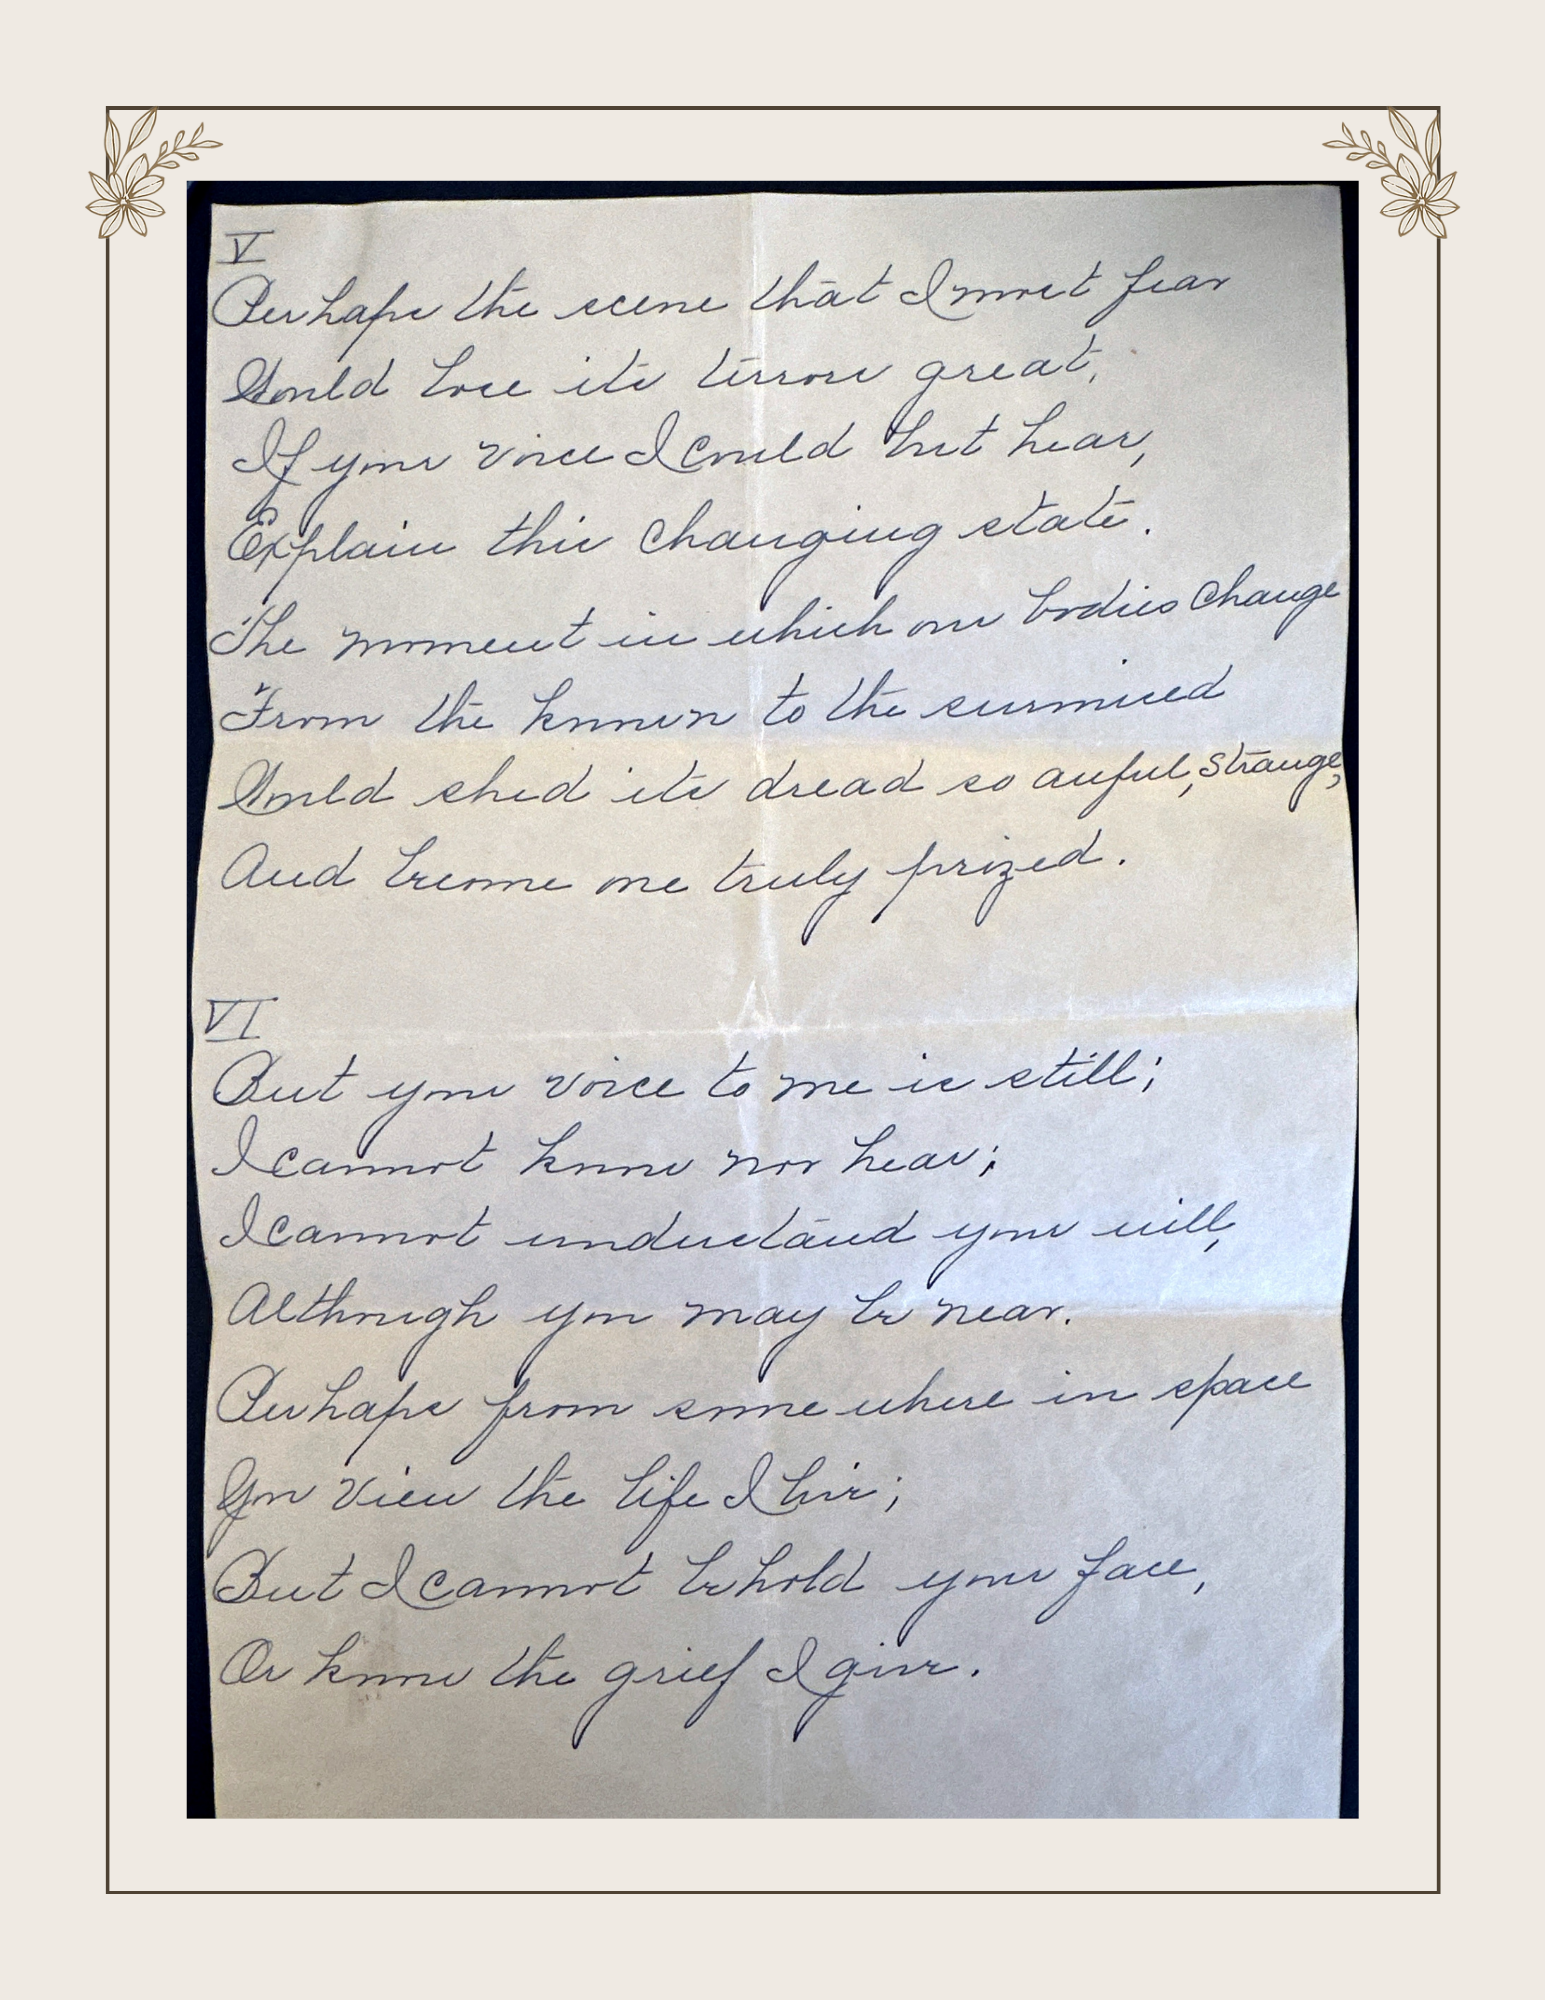 V
Perhaps the scene that I most fear
Would lose its terrors great,
If your voice I could but hear,
Explain this changing state.
The moment in which our bodies change
From the known to the surmised
Would shed its dread so awful, strange,
And become one truly prized.
VI
But your voice to me is still;
I cannot know nor hear;
I cannot understand your will,
Although you may be near.
Perhaps from somewhere in space
You view the life I live;
But I cannot behold your face,
Or know the grief I give.